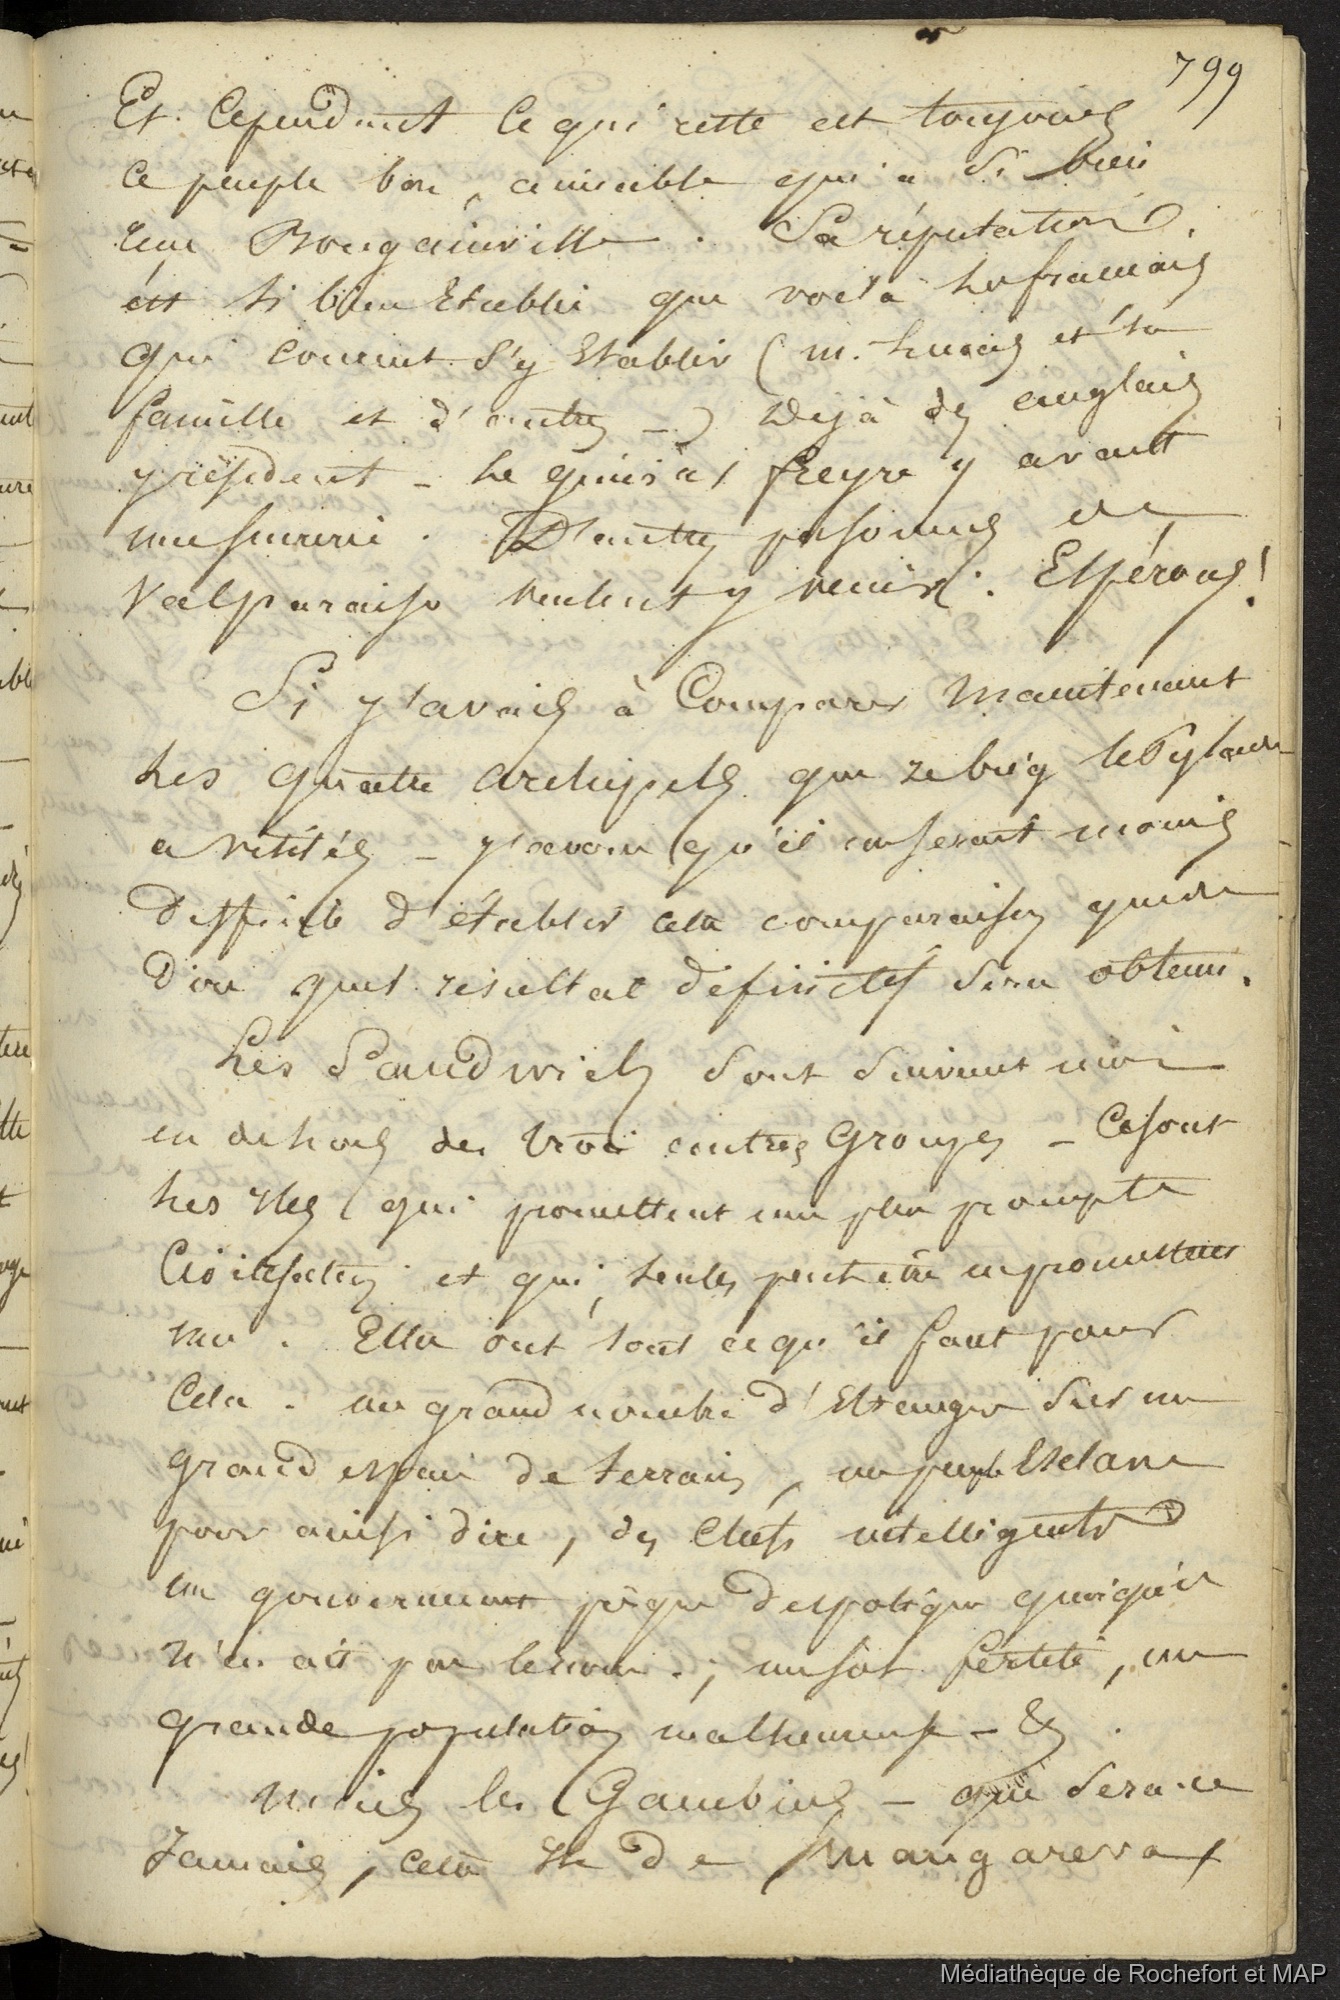 799
Et Cependant Ce qui reste est toujours
Ce peuple bon, aimable qui a si bien
reçu Bougainville. Sa réputation
est si bien Etablie que voilà des français
qui courent s'y Etablir (m. et sa
famille et d'autres -) Déjà des anglais
y résident - Le général freyre y avait
une sucrerie. D'autres personnes de
Valparaiso veulent y venir. Espérons!
Si j'avais à Comparer Maintenant
Les quatre archipels que le brig le Pylade
a visités - j'avoue qu'il me serait moins
difficile d'établir cette comparaison que de
Dire quel résultat définitif sera obtenu.
Les Sandwich sont suivant moi
en dehors des trois autres Groupes - Ce sont
Les Iles qui promettent une plus prompte
Civilisation et qui, seules peut être en promettent
une. Elles ont tout ce qu'il faut pour
Cela. un grand nombre d'Etrangers sur un
grand espace de terrain, un peuple Esclave
pour ainsi dire, des Chefs intelligents
un gouvernement presque despotique quoiqu'il
n'en ait pas le nom.; un sol fertile, une
grande population malheureuse - &
Mais les Gambiers - que sera-ce
Jamais, cette Ile de Mangareva
Médiathèque de Rochefort et MAP